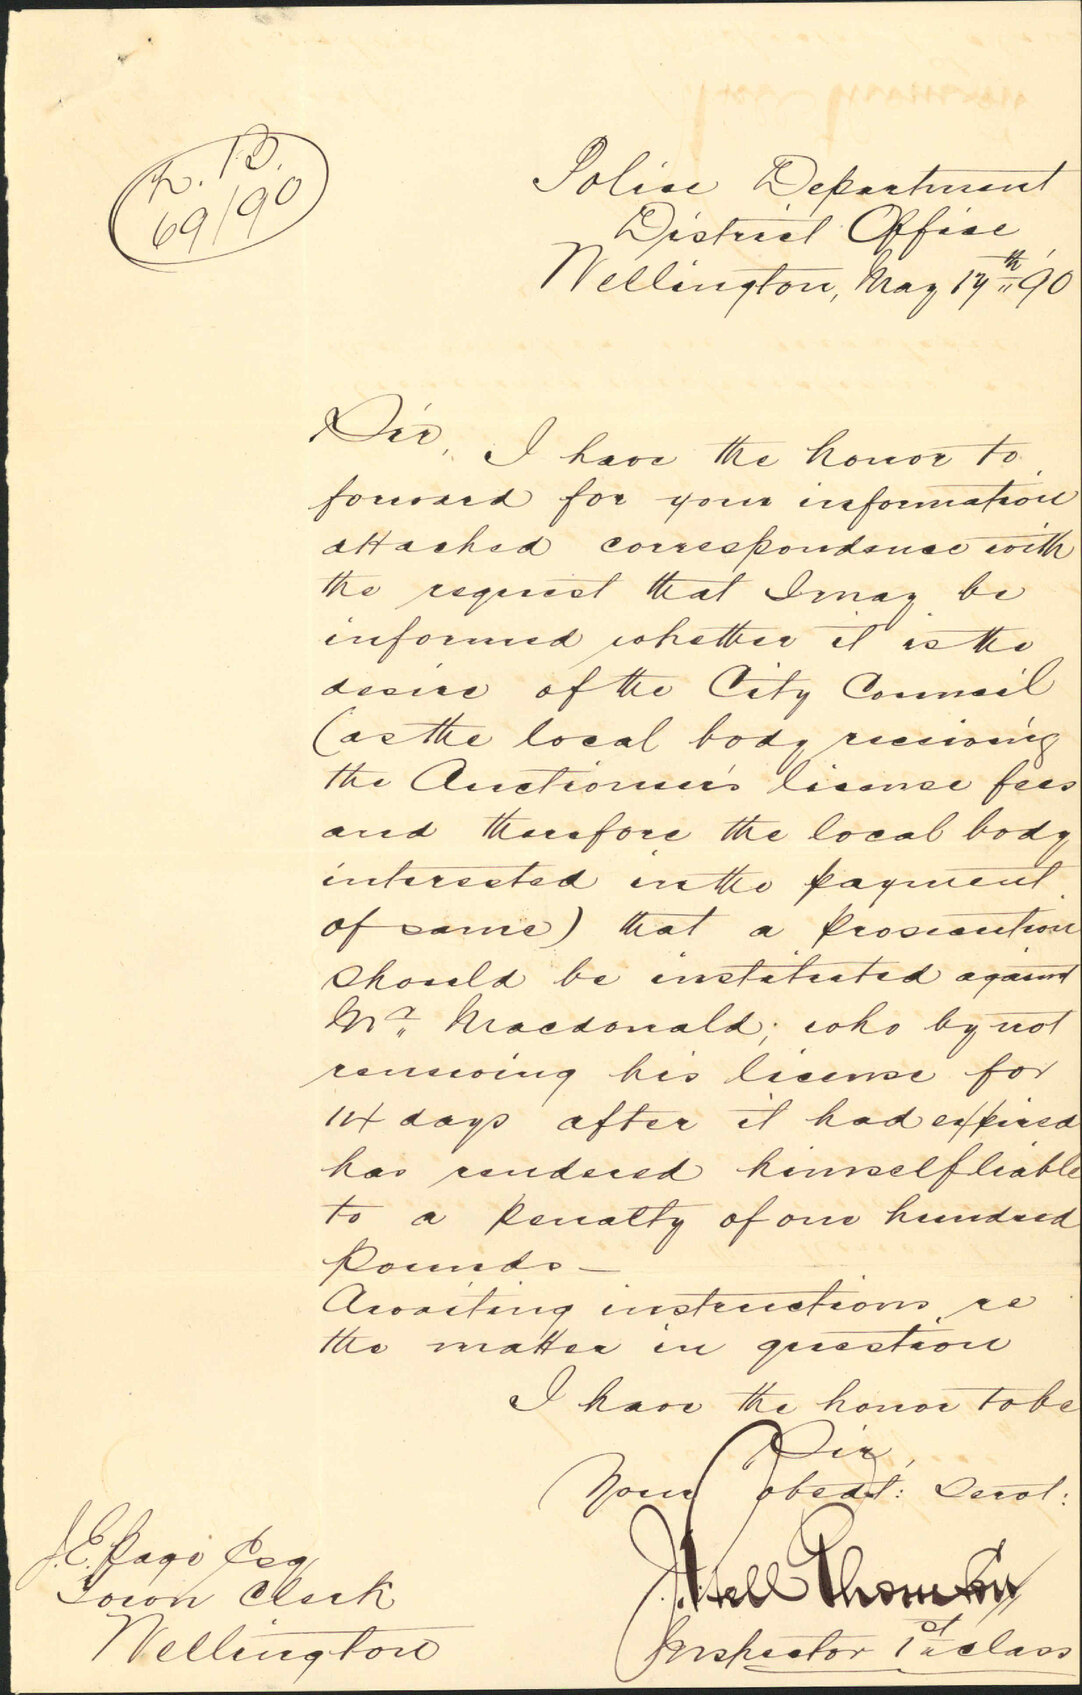 L.B.
69/90
Police Department
District Office
Wellington, May 17th '90
Sir,
I have the honor to
forward for your information
attached correspondence with
the request that I may be
informed whether it is the
desire of the City Council
(as the local body receiving
the Auctioneer's license fees
and therefore the local body
interested in the payment
of same) that a prosecution
should be instituted against
Mr. Macdonald; who by not
renewing his license for
14 days after it had expired
has rendered himself liable
to a penalty of one hundred
pounds —
Awaiting instructions re
the matter in question
I have the honor to be
Sir,
Your obedt: servt:
Thomson
Inspector 1st class
J.E. Page Esq
Town Clerk
Wellington